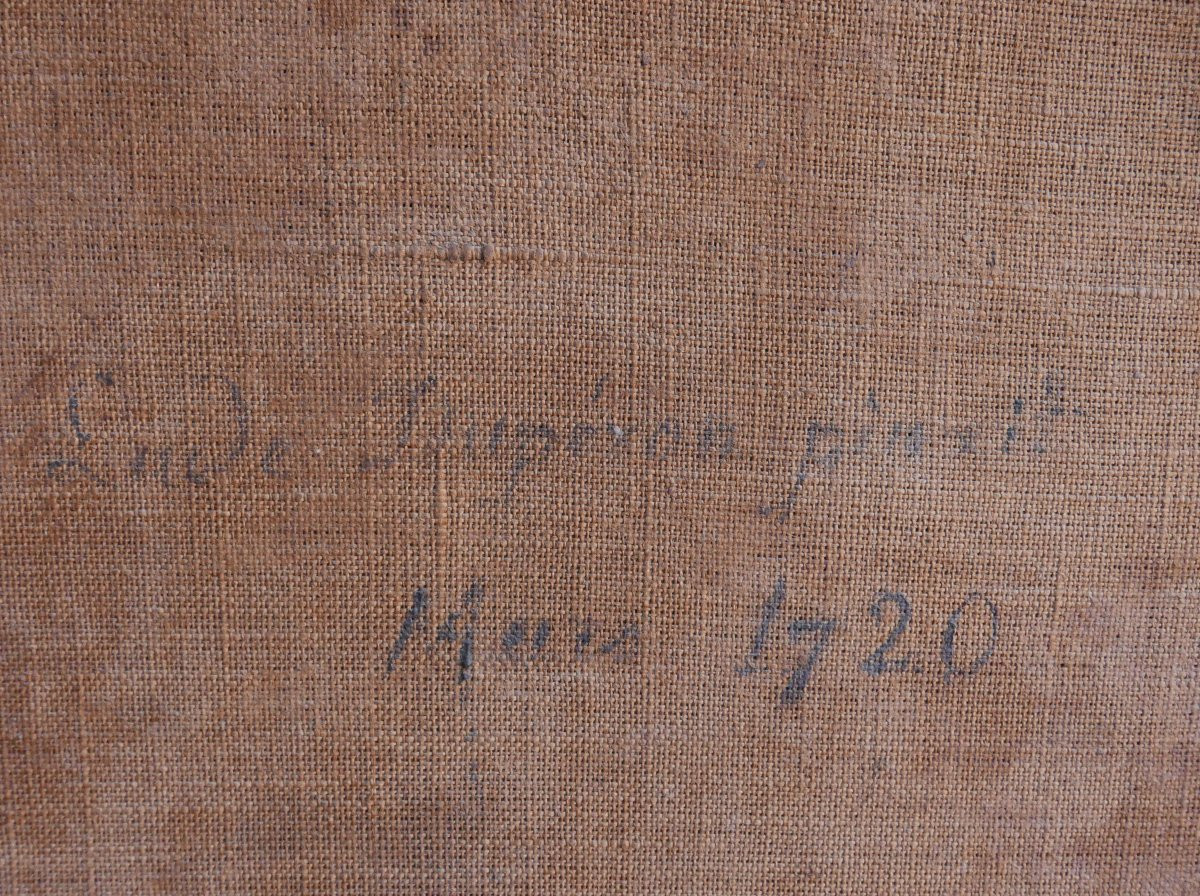 Dupéron pinxit
Mars 1720